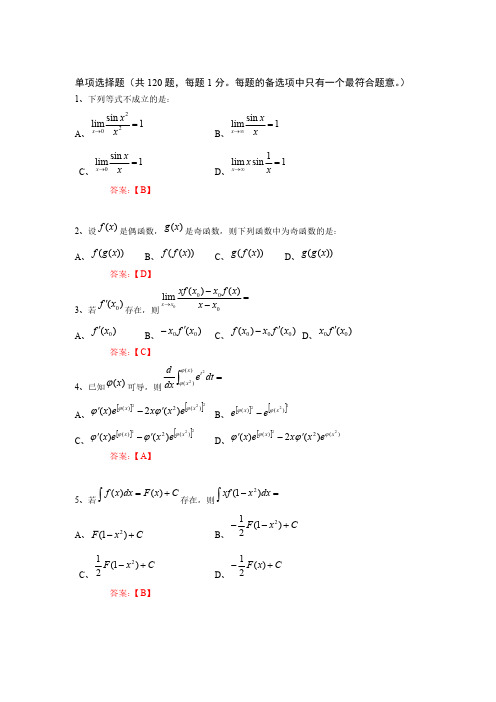 单项选择题（共 120 题，每题 1 分。每题的备选项中只有一个最符合题意。）
1、下列等式不成立的是：
A、$\lim_{x \to 0} \frac{\sin x^2}{x^2} = 1$ B、$\lim_{x \to \infty} \frac{\sin x}{x} = 1$
C、$\lim_{x \to 0} \frac{\sin x}{x} = 1$ D、$\lim_{x \to \infty} x \sin \frac{1}{x} = 1$
答案：【B】
2、设 $f(x)$ 是偶函数，$g(x)$ 是奇函数，则下列函数中为奇函数的是：
A、$f(g(x))$ B、$f(f(x))$ C、$g(f(x))$ D、$g(g(x))$
答案：【D】
3、若 $f'(x_0)$ 存在，则 $\lim_{x \to x_0} \frac{xf(x_0) - x_0 f(x)}{x - x_0} =$
A、$f'(x_0)$ B、$-x_0 f'(x_0)$ C、$f(x_0) - x_0 f'(x_0)$ D、$x_0 f'(x_0)$
答案：【C】
4、已知 $\varphi(x)$ 可导，则 $\frac{d}{dx} \int_{\varphi(x^2)}^{\varphi(x)} e^{t^2} dt =$
A、$\varphi'(x)e^{[\varphi(x)]^2} - 2x\varphi'(x^2)e^{[\varphi(x^2)]^2}$ B、$e^{[\varphi(x)]^2} - e^{[\varphi(x^2)]^2}$
C、$\varphi'(x)e^{[\varphi(x)]^2} - \varphi'(x^2)e^{[\varphi(x^2)]^2}$ D、$\varphi'(x)e^{[\varphi(x)]^2} - 2x\varphi'(x^2)e^{\varphi(x^2)}$
答案：【A】
5、若 $\int f(x)dx = F(x) + C$ 存在，则 $\int xf(1-x^2)dx =$
A、$F(1-x^2) + C$ B、$-\frac{1}{2}F(1-x^2) + C$
C、$\frac{1}{2}F(1-x^2) + C$ D、$-\frac{1}{2}F(x) + C$
答案：【B】